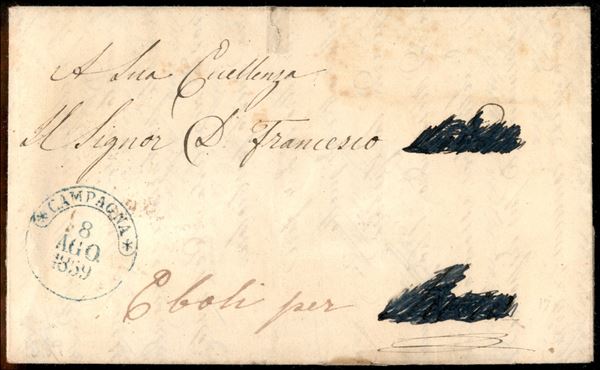 A Sua Eccellenza
Il Signor D. Francesco
*CAMPAGNA*
8
AGO
1859
Eboli per